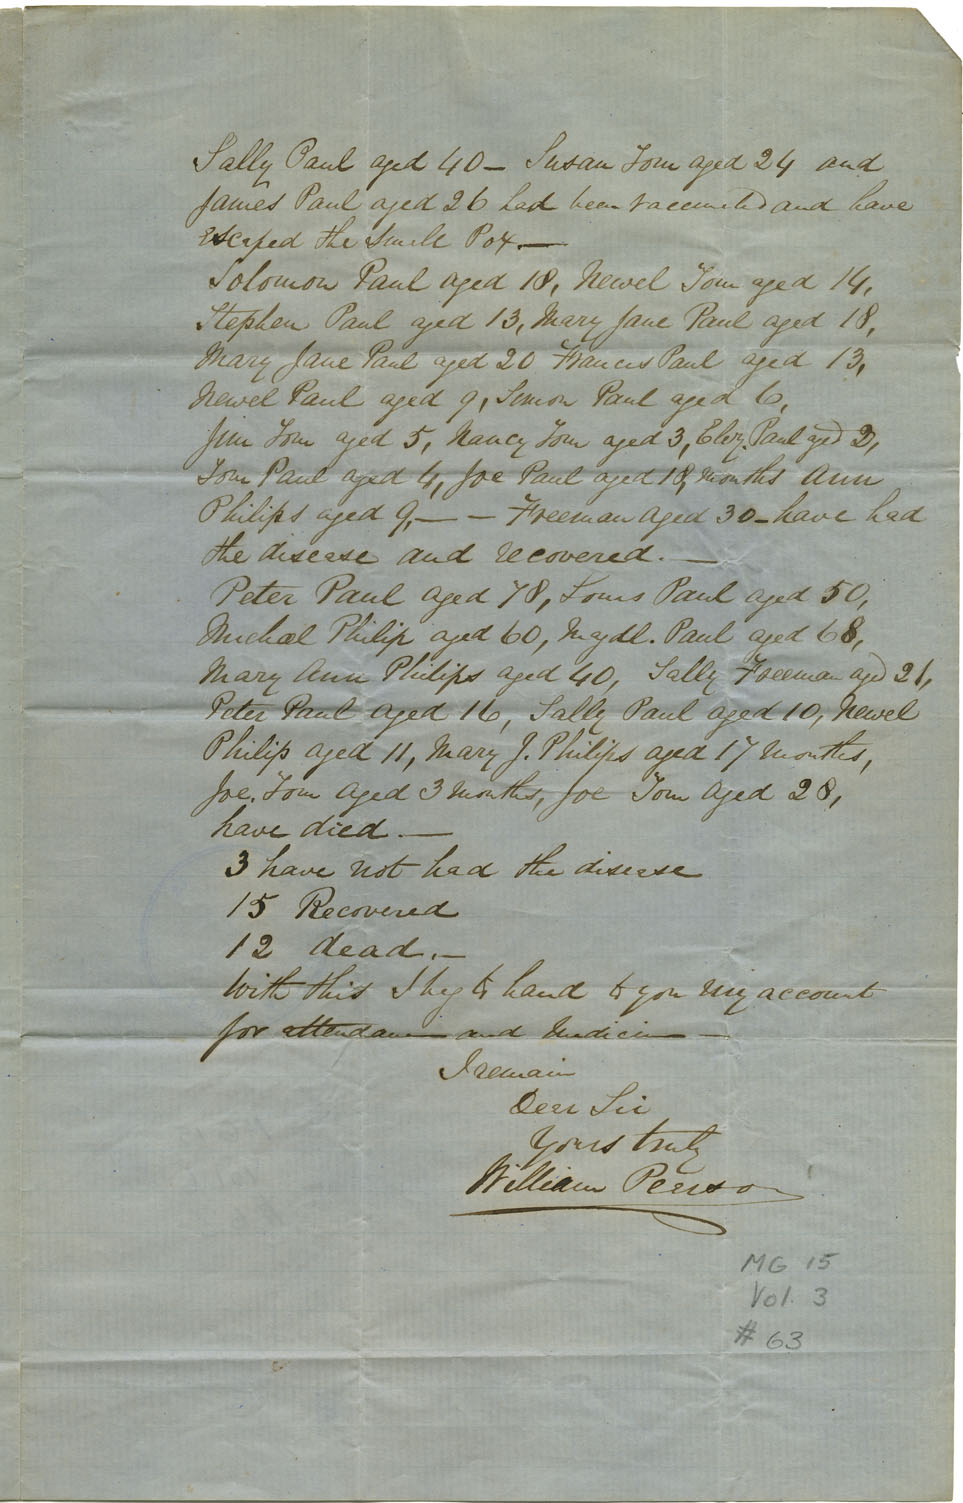 Sally Paul aged 40 – Susan Tom aged 24 and
James Paul aged 26 had been vaccinated and have
escaped the Small Pox. —
Solomon Paul aged 18, Newel Tom aged 14,
Stephen Paul aged 13, Mary Jane Paul aged 18,
Mary Jane Paul aged 20 Francis Paul aged 13,
Newel Paul aged 9, Simon Paul aged 6,
Jim Tom aged 5, Nancy Tom aged 3, Eliz. Paul aged 2,
Tom Paul aged 4, Joe Paul aged 18, months Ann
Philips aged 9, — – Freeman aged 30 – have had
the disease and recovered. —
Peter Paul aged 78, Louis Paul aged 50,
Michael Philip aged 60, Magdl. Paul aged 68,
Mary Ann Philips aged 40, Sally Freeman aged 21,
Peter Paul aged 16, Sally Paul aged 10, Newel
Philip aged 11, Mary J. Philips aged 17 months,
Joe. Tom aged 3 months, Joe Tom aged 28,
have died. —
3 have not had the disease
15 Recovered
12 dead. –
With this I beg to hand to you my account
for attendance and medicine —
I remain
Dear Sir
Yours truly
William Pearson
MG 15
Vol. 3
# 63